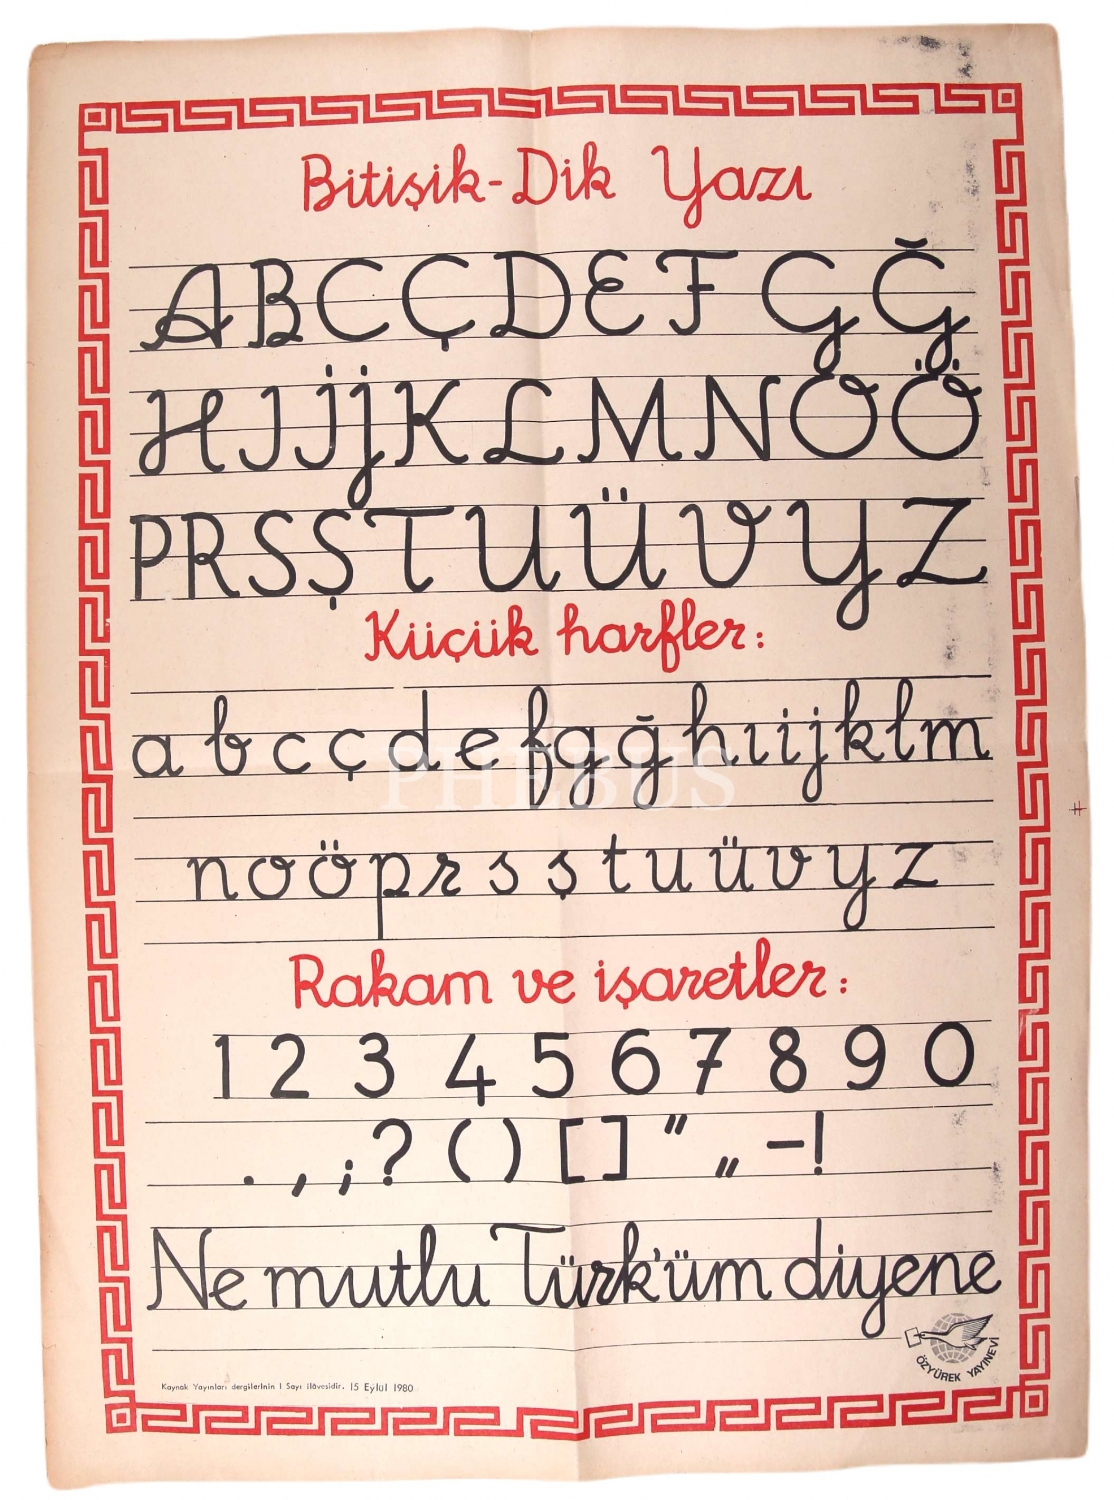 Bitişik-Dik Yazı
A B C Ç D E F G Ğ
H I İ J K L M N O Ö
P R S Ş T U Ü V Y Z
Küçük harfler:
a b c ç d e f g ğ h ı i j k l m
n o ö p r s ş t u ü v y z
Rakam ve işaretler:
1 2 3 4 5 6 7 8 9 0
. , ; ? ( ) [ ] " „ - !
Ne mutlu Türk'üm diyene
Kaynak Yayınları dergilerinin 1 Sayı ilâvesidir. 15 Eylül 1980
ÖZYÜREK YAYINEVİ
PHEBUS